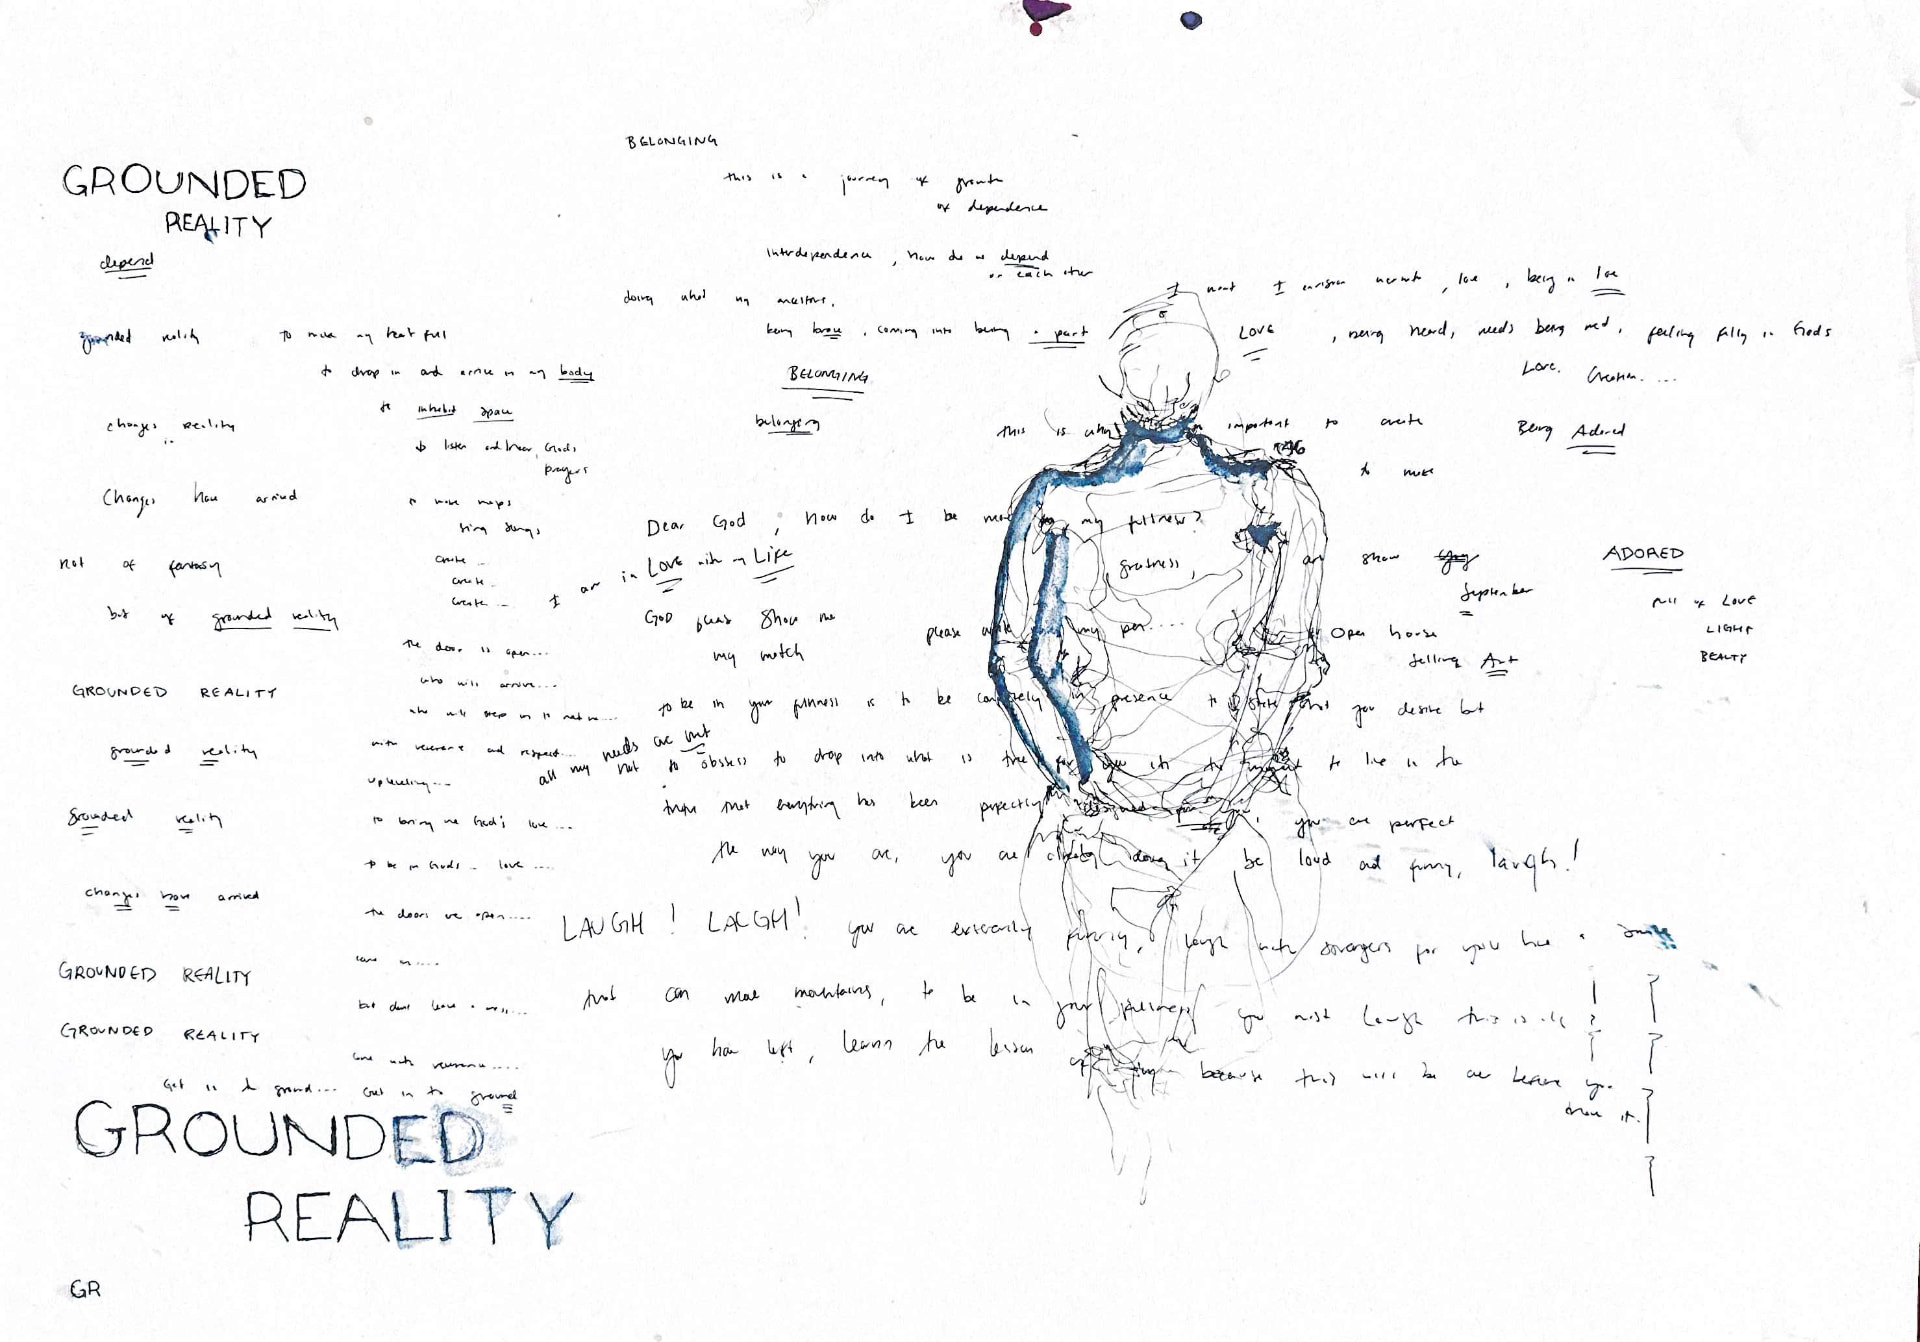 GROUNDED
REALITY
depend
grounded reality
changes reality
Changes have arrived
not of fantasy
but of grounded reality
GROUNDED REALITY
grounded reality
grounded reality
changes have arrived
GROUNDED REALITY
GROUNDED REALITY
Get in to ground...
GROUNDED
REALITY
GR
to make my heart full
to drop in and arrive in my body
to inhabit space
to listen and hear God's
prayers
to make maps
sing songs
create...
create...
create...
the door is open...
who will arrive...
who will step in to
with reverence and respect...
to bring me God's love...
to be in Gods love....
the doors are open....
come in....
but dont leave a mess....
come with reverence.....
Get in to ground
BELONGING
this is a journey of growth
of dependence
interdependence, how do we depend
on each other
doing what my ancestors,
being brave, coming into being a part
BELONGING
belonging
I want I envision, love, being in love
LOVE, being heard, needs being met, feeling fully in Gods
Love. Creation....
this is why important to create
Being Adored
to make
Dear God, how do I be more in my fullness?
I am in LOVE with my LIFE
greatness,
art show
September
ADORED
full of LOVE
LIGHT
BEAUTY
GOD please show me
my match
please my pen.....
Open house
selling Art
to be in your fullness is to be completely in presence to state what you desire but
all my needs are met
not to obsess to drop into what is true for you to live in the
truth that everything has been perfectly designed for you are perfect
the way you are, you are already doing it be loud and funny, laugh!
LAUGH! LAUGH! you are extremely funny, laugh with strangers for you have a smile
that can move mountains, to be in your fullness you must laugh this is all
you have left, learn the lesson of because this will be over before you
know it.